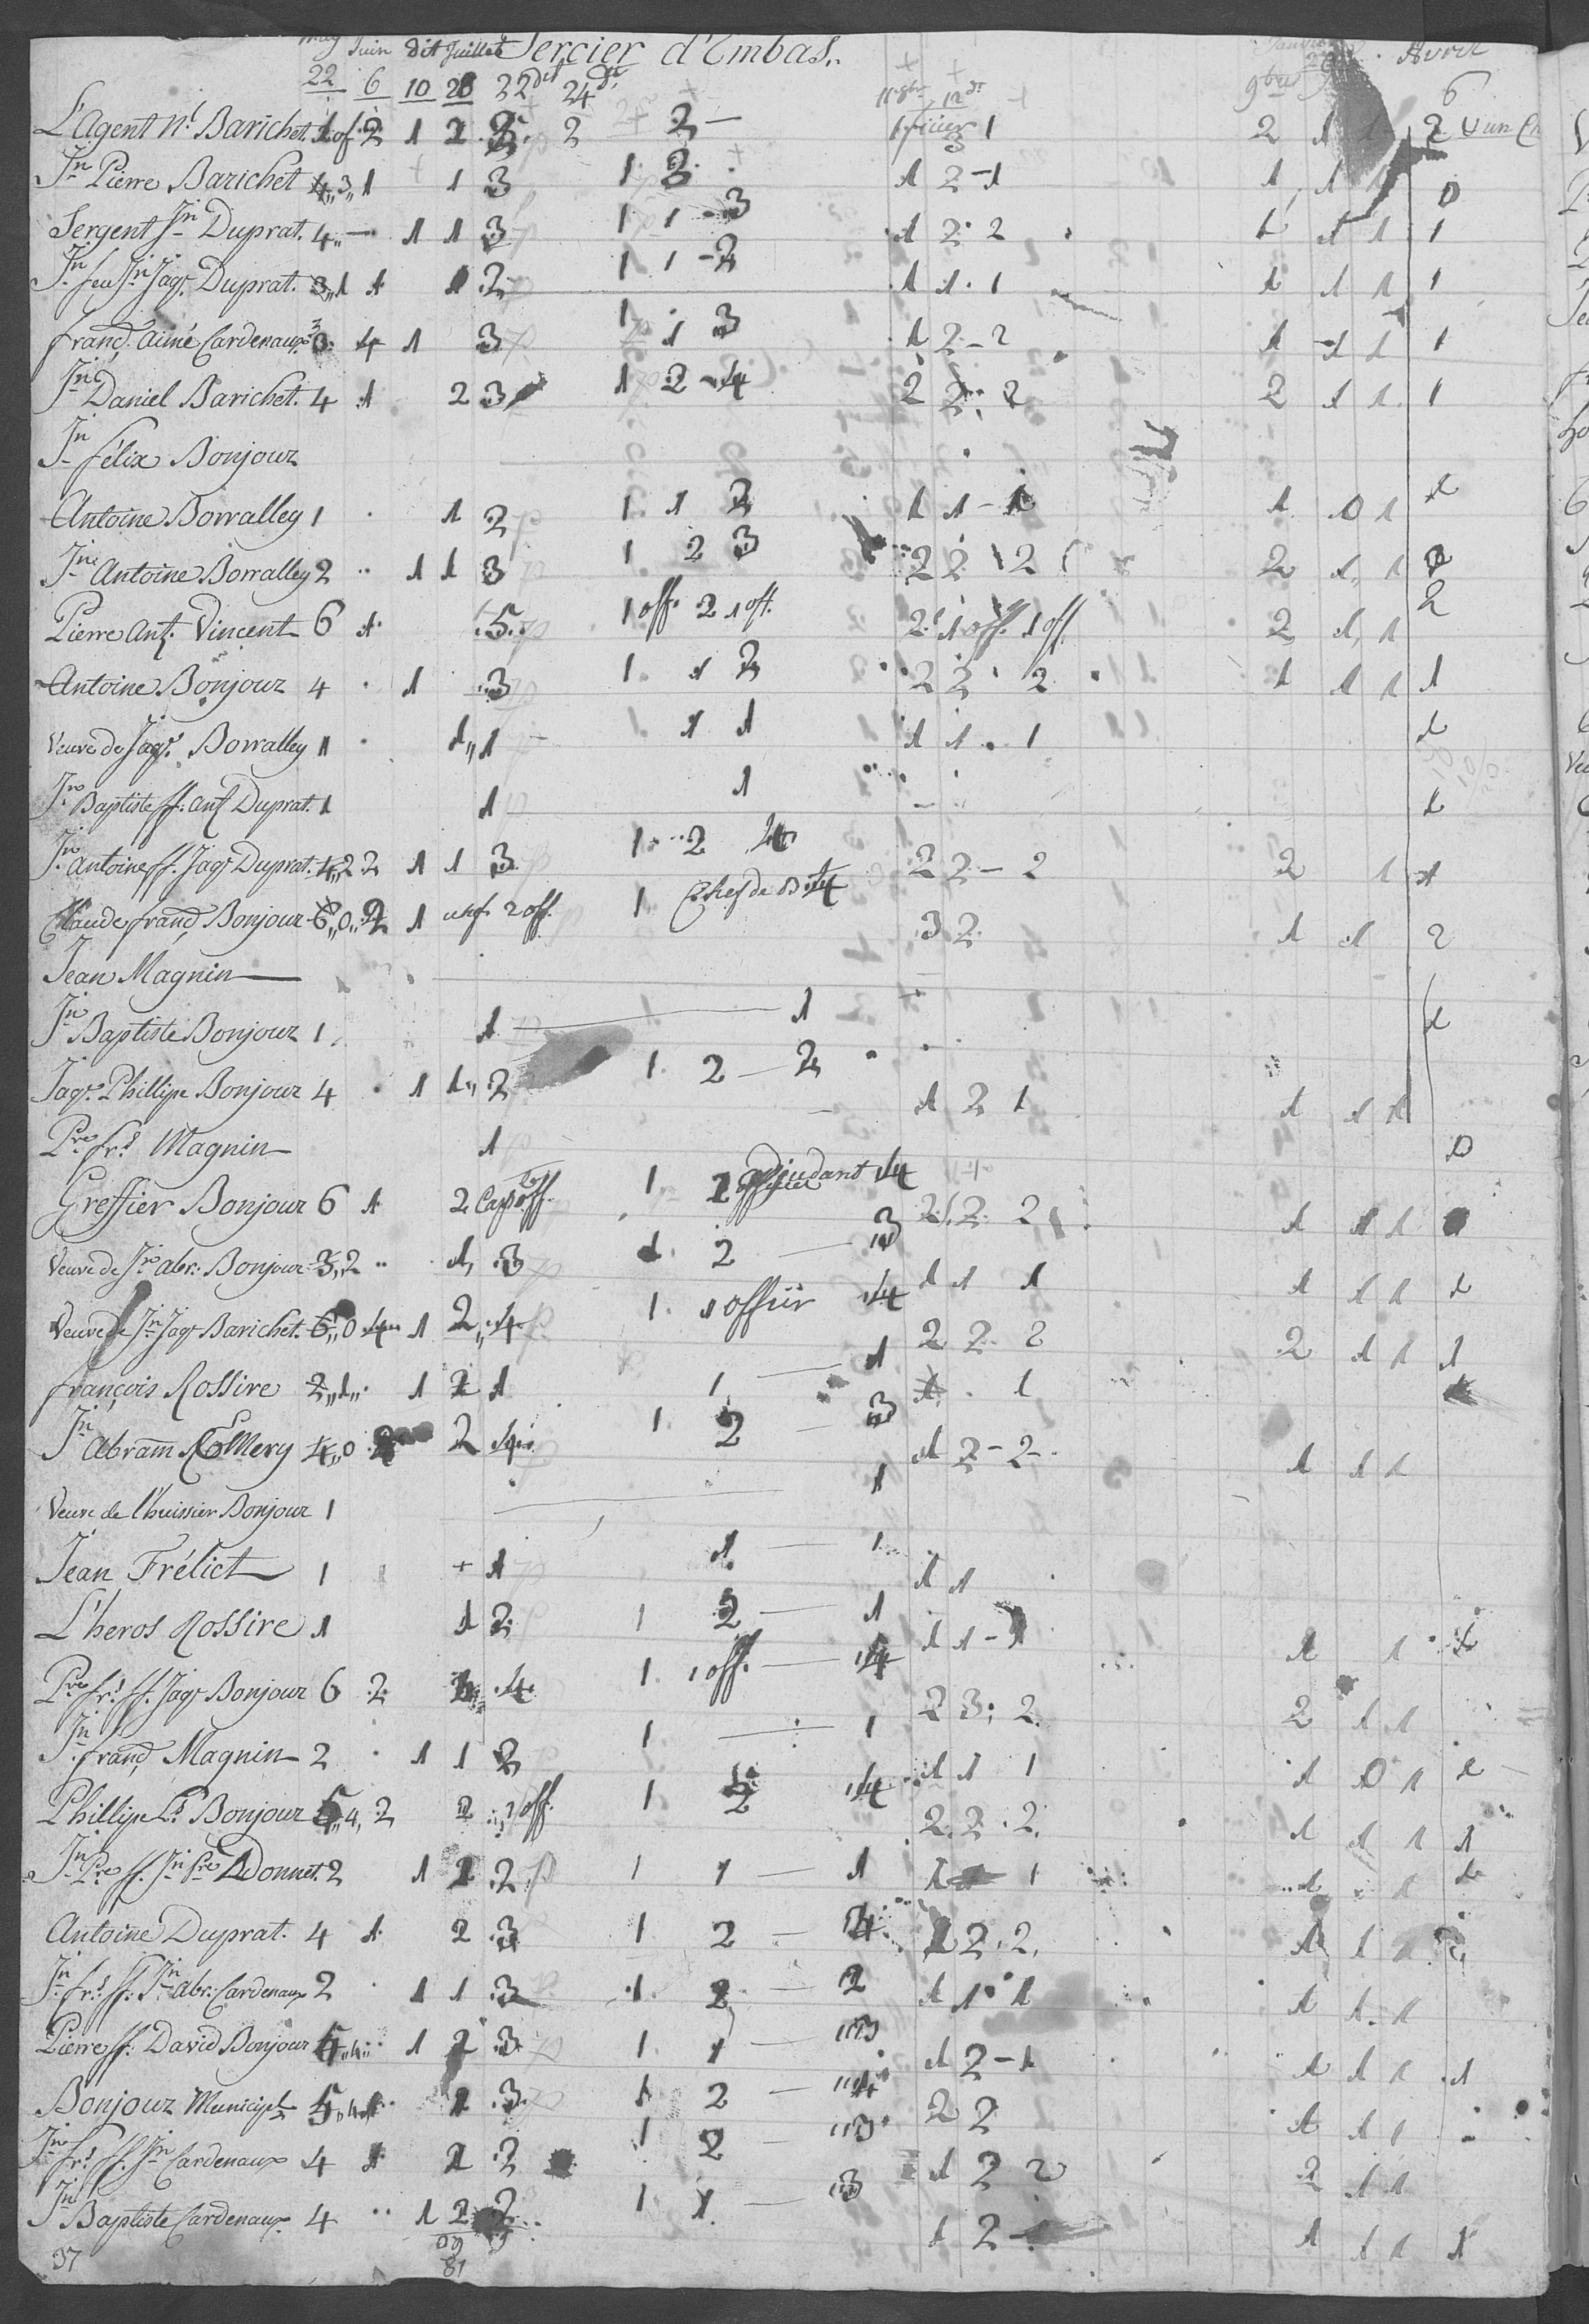 may Juin dit Juillet Tercier d'Embas.
22 6 10 28 32 dit 24 dt. 11 9bre 12 dt 9bre Avril
L'Agent n.l Barichet. 1 of 2 1 2 2 2 2 — 1 1 2 1 1 2
Jn Pierre Barichet 4,,3,,1 1 3 1 3 1 2-1 1 1 1 0
Sergent Jn Duprat. 4,,— 1 1 3 1 1-3 1 2 2 1 1 1 1
Jn feu Jn Jaqs. Duprat. 3,,1 1 1 2 1 1-2 1 1 1 1 1 1 1
franç. aimé Cardenaux 3 4 1 3 1 1 3 1 2-2 1 1 1 1
Jn Daniel Barichet. 4 1 2 3 1 2-4 2 2 2 2 1 1 1
Jn félix Bonjour
Antoine Borralley 1 1 2 1 1 2 1 1-1 1 0 1 1
Jn Antoine Borralley 2 1 1 3 1 2 3 2 2 2 2 1 1
Pierre Ant. Vincent 6 1 5 1 off. 2 1 off. 2 1 off. 1 off 2 1 1 2
Antoine Bonjour 4 1 3 1 1 2 2 2 2 1 1 1 1
Veuve de Jaqs. Borralley 1 1,,1 1 1 1 1 1 1
Jn Baptiste ff. ant Duprat. 1 1 1 1
Jn Antoine ff. Jaqs Duprat. 4,,2 2 1 1 3 1 2 4 2 2-2 2 1 1
Claude franç Bonjour 6,,0,,2 1 2 off. 1 Chef de B 4 3 2 1 1 2
Jean Magnin
Jn Baptiste Bonjour 1 1 — 1 1
Jaqs. Phillipe Bonjour 4 1 1,,2 1 2 — 2 1 2 1 1 1 1
Pre frs. Magnin 1 0
Greffier Bonjour 6 1 2 Cap off. 1 adjudant 4 2 2 2 1 1 1
Veuve de Jn abr. Bonjour 3,,2 1,,3 1 2 — 3 1 1 1 1 1 1 1
Veuve de Jn Jaqs Barichet. 6,,0 4 1 2,,4 1 1 offiir 4 2 2 2 2 1 1 1
françois Rossire 2,,1,, 1 2 1 1 — 1 1 1
Jn Abram Emery 4,,0 2 2 4 1 2 — 3 1 2-2 1 1 1
Veuve de l'huissier Bonjour 1 — 1
Jean Frélict 1 + 1 1 — 1 1 1
L'heros Rossire 1 1 2 1 2 — 1 1 1-1 1 1 1
Pre frs. ff. Jaqs Bonjour 6 2 4 1 1 off. — 4 2 3 2 2 1 1
Jn franç Magnin 2 1 1 2 1 — 1 1 1 1 1 0 1 1
Phillipe Ls. Bonjour 5,,4, 2 2 off. 1 2 4 2 2 2 1 1 1 1
Jn Pre ff. Jn Pre Donnet. 2 1 2 2 1 1 — 1 1 1 1 1 1
Antoine Duprat. 4 1 2 3 1 2 — 4 1 2 2 1 1 1
Jn frs. ff. Jn abr. Cardenaux 2 1 1 3 1 2 — 2 1 1 1 1 1 1
Pierre ff. David Bonjour 5,,4,, 1 2 3 1 1 — 3 1 2-1 1 1 1 1
Bonjour Municipl 5,,4,, 1 2 3 1 2 — 4 2 2 1 1 1 -
Jn frs. ff. Jn Cardenaux 4 1 2 2 1 2 — 3 1 2 2 2 1 1
Jn Baptiste Cardenaux 4 1 2 2 1 1 — 3 1 2 1 1 1 1
37 81